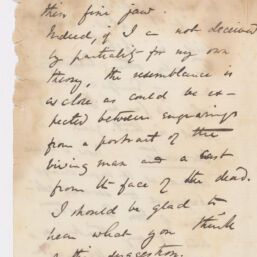 thin fine jaw.
Indeed, if I am not deceived
by partiality for my own
theory, the resemblance is
as close as could be ex-
pected between engravings
from a portrait of the
living man and a cast
from the face of the dead.
I should be glad to
hear what you think
of this suggestion.